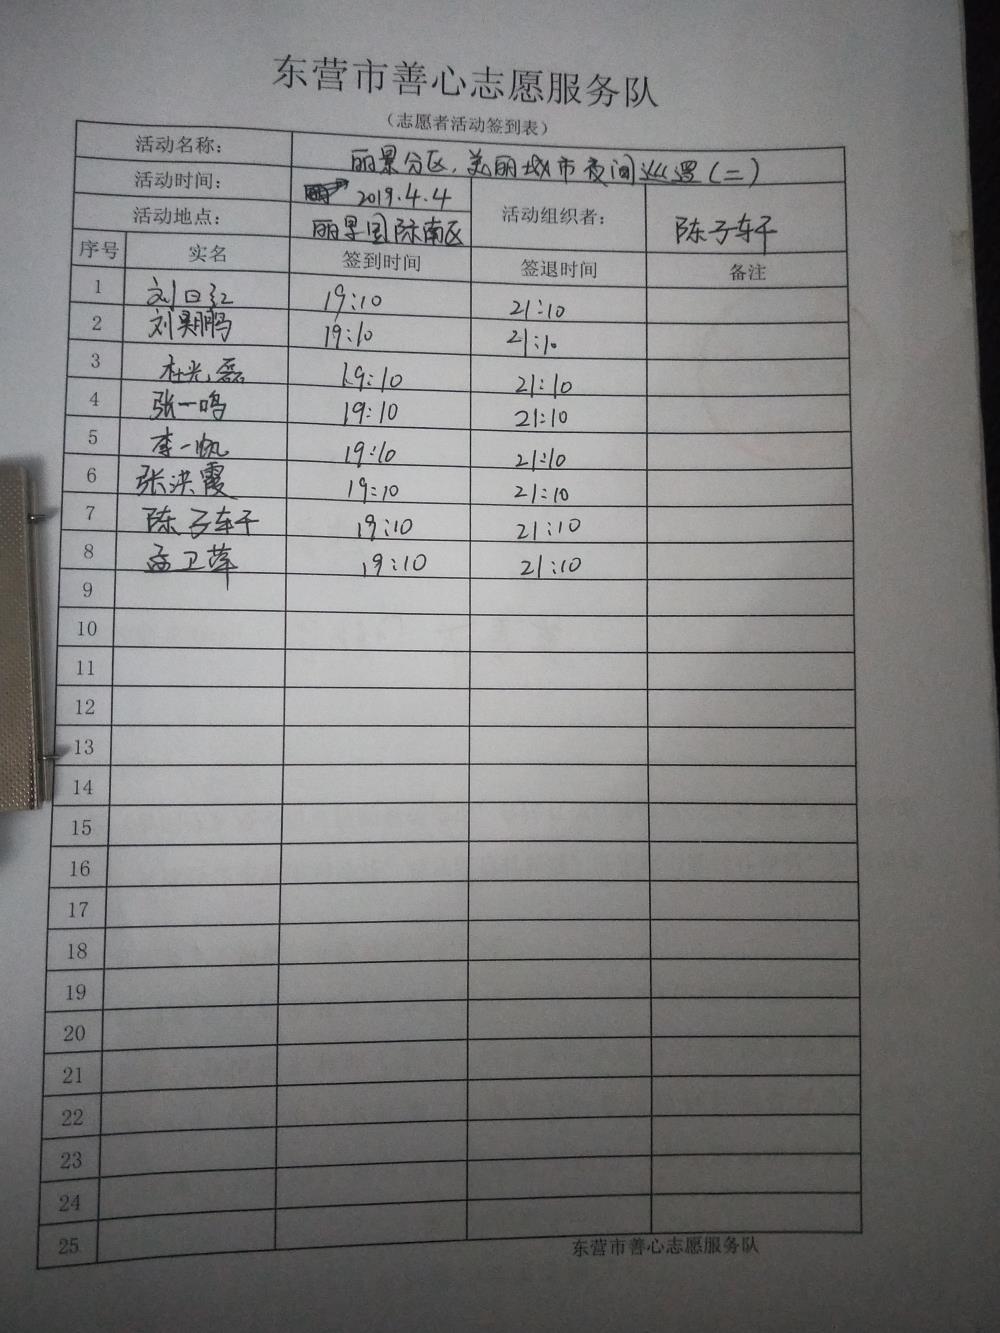 东营市善心志愿服务队
（志愿者活动签到表）
活动名称： 丽景分区，美丽城市夜间巡逻（二）
活动时间： 2019.4.4 活动组织者： 陈子轩
活动地点： 丽景国际南区
序号 实名 签到时间 签退时间 备注
1 刘日红 19:10 21:10
2 刘昊鹏 19:10 21:10
3 杜光磊 19:10 21:10
4 张一鸣 19:10 21:10
5 李一帆 19:10 21:10
6 张洪霞 19:10 21:10
7 陈子轩 19:10 21:10
8 孟卫萍 19:10 21:10
9
10
11
12
13
14
15
16
17
18
19
20
21
22
23
24
25
东营市善心志愿服务队